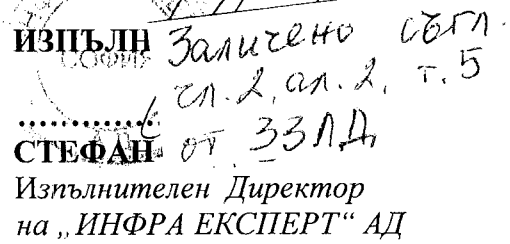 ИЗПЪЛН Заличено съгл.
СОФИЯ чл. 2, ал. 2, т. 5
от ЗЗЛД
СТЕФАН
Изпълнителен Директор
на „ИНФРА ЕКСПЕРТ“ АД